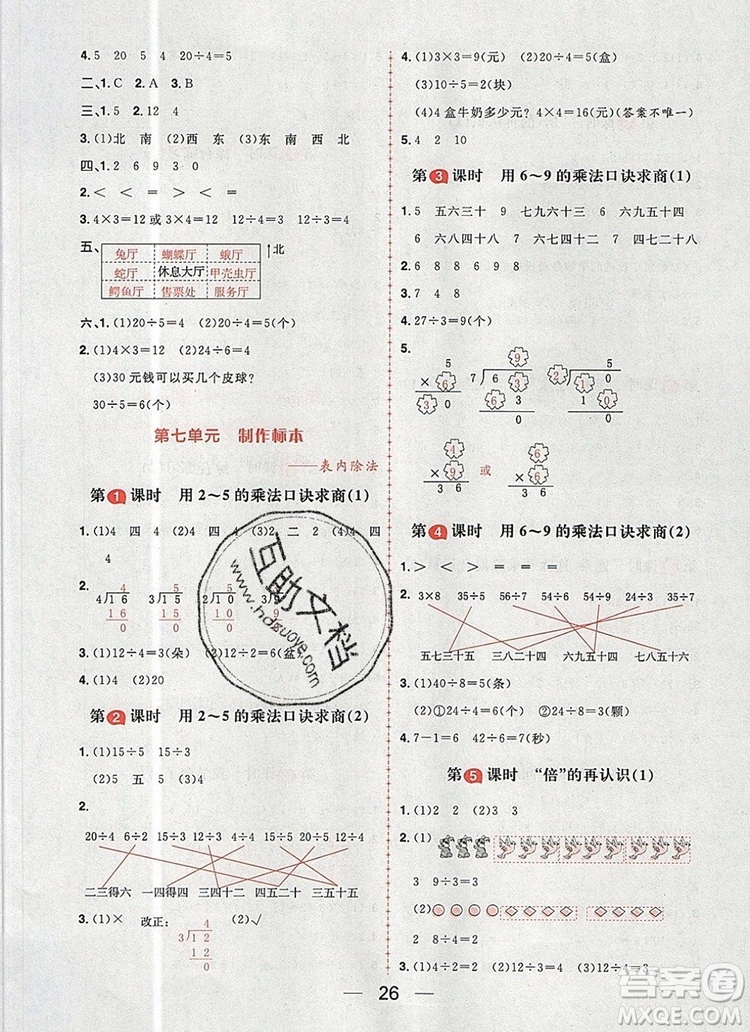 4. 5 20 5 4 20÷4=5
二、1. C 2. A 3. B
三、1. 5 2. 12 4
3. (1)北 南 (2)西 东 (3)东 南 西 北
四、1. 2 6 9 3 0
2. < < = =
3. 4×3=12或3×4=12 12÷3=4 12÷4=3
五、
兔厅 蝴蝶厅 蛾厅 ↑北
蛇厅 休息大厅 甲壳虫厅
鳄鱼厅 售票处 服务厅
六、1. (1)20÷5=4 (2)20÷4=5(个)
2. (1)4×3=12(元) (2)24÷6=4(个)
(3)30元钱可以买几个皮球?
30÷5=6(个)
第七单元 制作标本
——表内除法
第1课时 用2~5的乘法口诀求商(1)
1. (1)4 四 4 (2)4 四 4 (3)2 二 2 (4)4 四
4
2.
4 5 5 3
4)16 3)15 2)10 3)9
16 15 10 9
0 0 0 0
3. (1)12÷4=3(朵) (2)12÷2=6(盆)
4. (1)4 (2)20
第2课时 用2~5的乘法口诀求商(2)
1. (1)15÷5 15÷3
(2)5 五 5 (3)4
2.
20÷4 6÷2 15÷5 12÷3 4÷4 15÷3 20÷5 12÷4
二三得六 一四得四 三四十二 四五二十 三五十五
3. (1)× 改正: (2)√
4
3)12
12
0
4. (1)3×3=9(元) (2)20÷4=5(盒)
(3)10÷5=2(块)
(4)4盒牛奶多少元? 4×4=16(元)(答案不唯一)
5. 4 2 10
第3课时 用6~9的乘法口诀求商(1)
1. 5 五六三十 9 七九六十三 6 六九五十四
6 六八四十八 8 七八五十六 6 六七四十二
2. 9 7 8 9 8 8
3. 7 6 4 8
4. 27÷3=9(个)
5.
5 9 5
× 6 7)63 6)30
30 63 30
0 0
4 9 6
× 9 或 × 4 × 6
36 36 36
第4课时 用6~9的乘法口诀求商(2)
1. > < > = = =
2.
3×8 35÷5 56÷7 54÷6 54÷9 24÷3 35÷7
五七三十五 三八二十四 六九五十四 七八五十六
3. (1)40÷8=5(条)
(2)①24÷4=6(个) ②24÷8=3(颗)
4. 7-1=6 42÷6=7(秒)
第5课时 “倍”的再认识(1)
1. (1)2 2 (2)3 3
2. (1)
3 9÷3=3
(2)
4 8÷2=4
3. (1)12÷4=3 (2)8÷4=2 (3)12÷6=2
26
互助文档
www.hdzuoye.com
答案圈
MXQE.COM